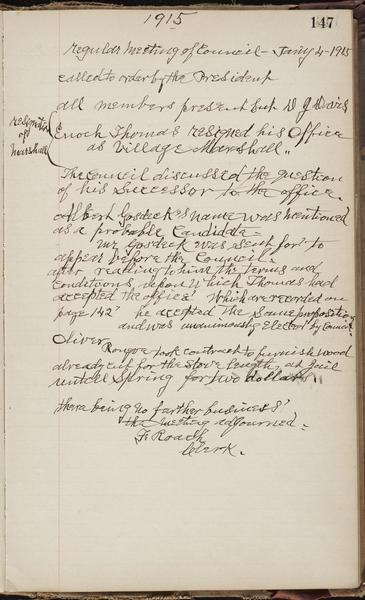 1915
147
regular meeting of Council - Jany 4 - 1915
called to order by the President
all members present but D J Davis
resignation
of
Marshall
Enoch Thomas resigned his Office
as Village Marshall "
The Council discussed the question
of his Successor to the office.
Albert Gosdeck's name was mentioned
as a probable Candidate =
Mr Gosdeck was sent for to
appear before the Council.
after reading to him the terms and
conditions, upon which Thomas had
accepted the office' which are recorded on
page 142' he accepted the same proposition
and was unanimously elected by Council
Oliver
took contract to furnish wood
already cut for the stove length, at Jail
untill Spring for two dollars "
there being no farther business'
the meeting adjourned =
F. Roach
Clerk.